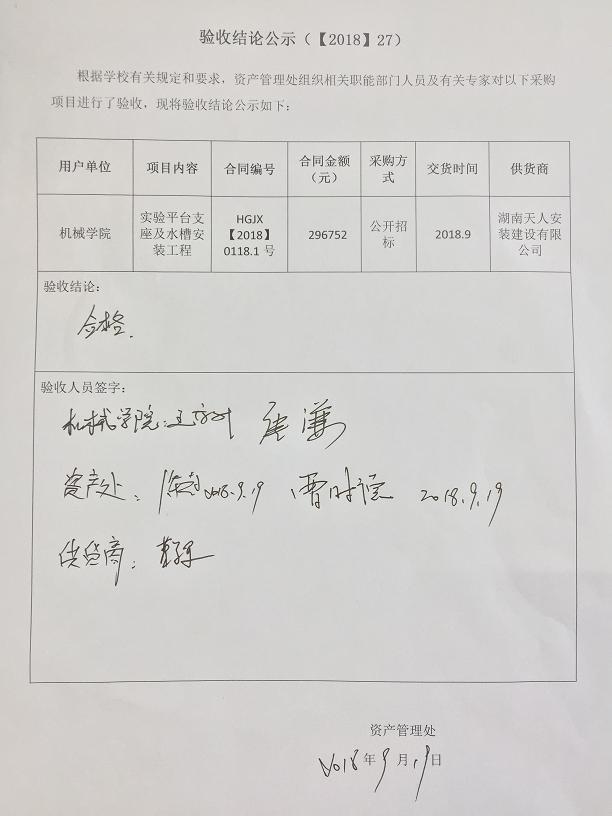 验收结论公示（【2018】27）
根据学校有关规定和要求，资产管理处组织相关职能部门人员及有关专家对以下采购
项目进行了验收，现将验收结论公示如下：
用户单位 项目内容 合同编号 合同金额（元） 采购方式 交货时间 供货商
机械学院 实验平台支座及水槽安装工程 HGJX【2018】0118.1 号 296752 公开招标 2018.9 湖南天人安装建设有限公司
验收结论：
合格.
验收人员签字：
机械学院：
资产处： 2018.9.19 2018.9.19
供货商：
资产管理处
2018年9月19日